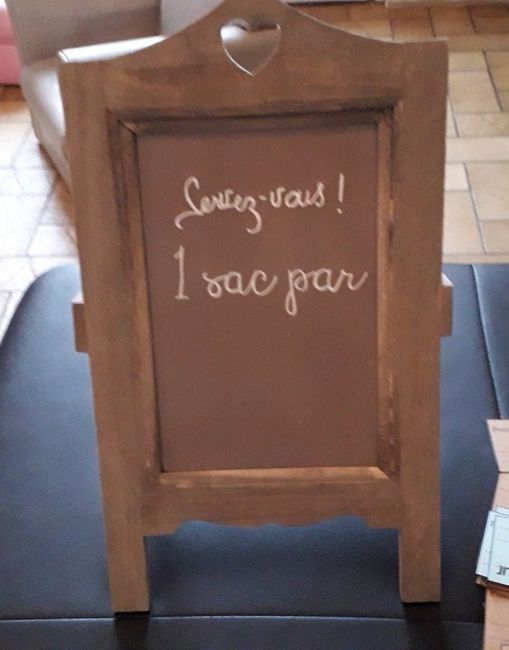 Servez-vous !
1 sac par